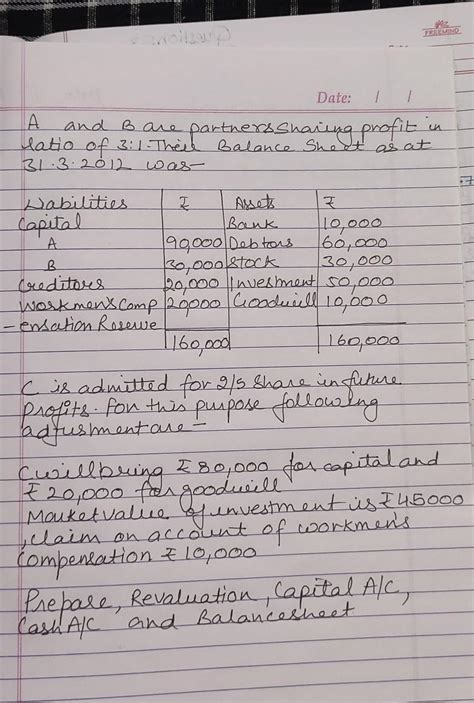 FREEMIND
Date: / /
A and B are partners sharing profit in
ratio of 3:1. Their Balance Sheet as at
31.3.2012 was-
Liabilities ₹ Assets ₹
Capital Bank 10,000
A 90,000 Debtors 60,000
B 30,000 Stock 30,000
Creditors 20,000 Investment 50,000
Workmen's Comp 20000 Goodwill 10,000
-ensation Reserve
160,000 160,000
C is admitted for 2/5 share in future
Profits. For this purpose following
adjustment are -
C will bring ₹ 80,000 for capital and
₹ 20,000 for goodwill
Market value of investment is ₹ 45000
, claim on account of workmen's
Compensation ₹ 10,000
Prepare, Revaluation, Capital A/C,
Cash A/C and Balancesheet